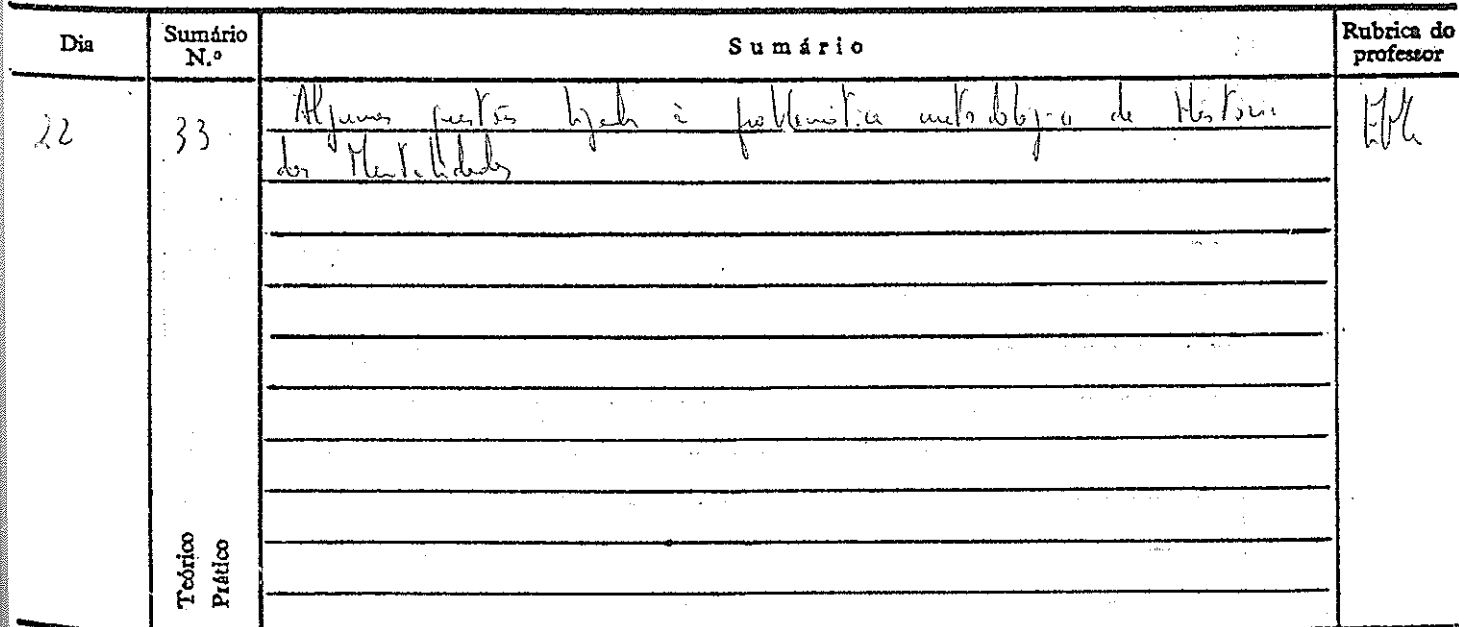 Dia
Sumário N.º
Sumário
Rubrica do professor
22
33
Algumas questões ligadas à problemática metodológica da História
das Mentalidades
Teórico
Prático